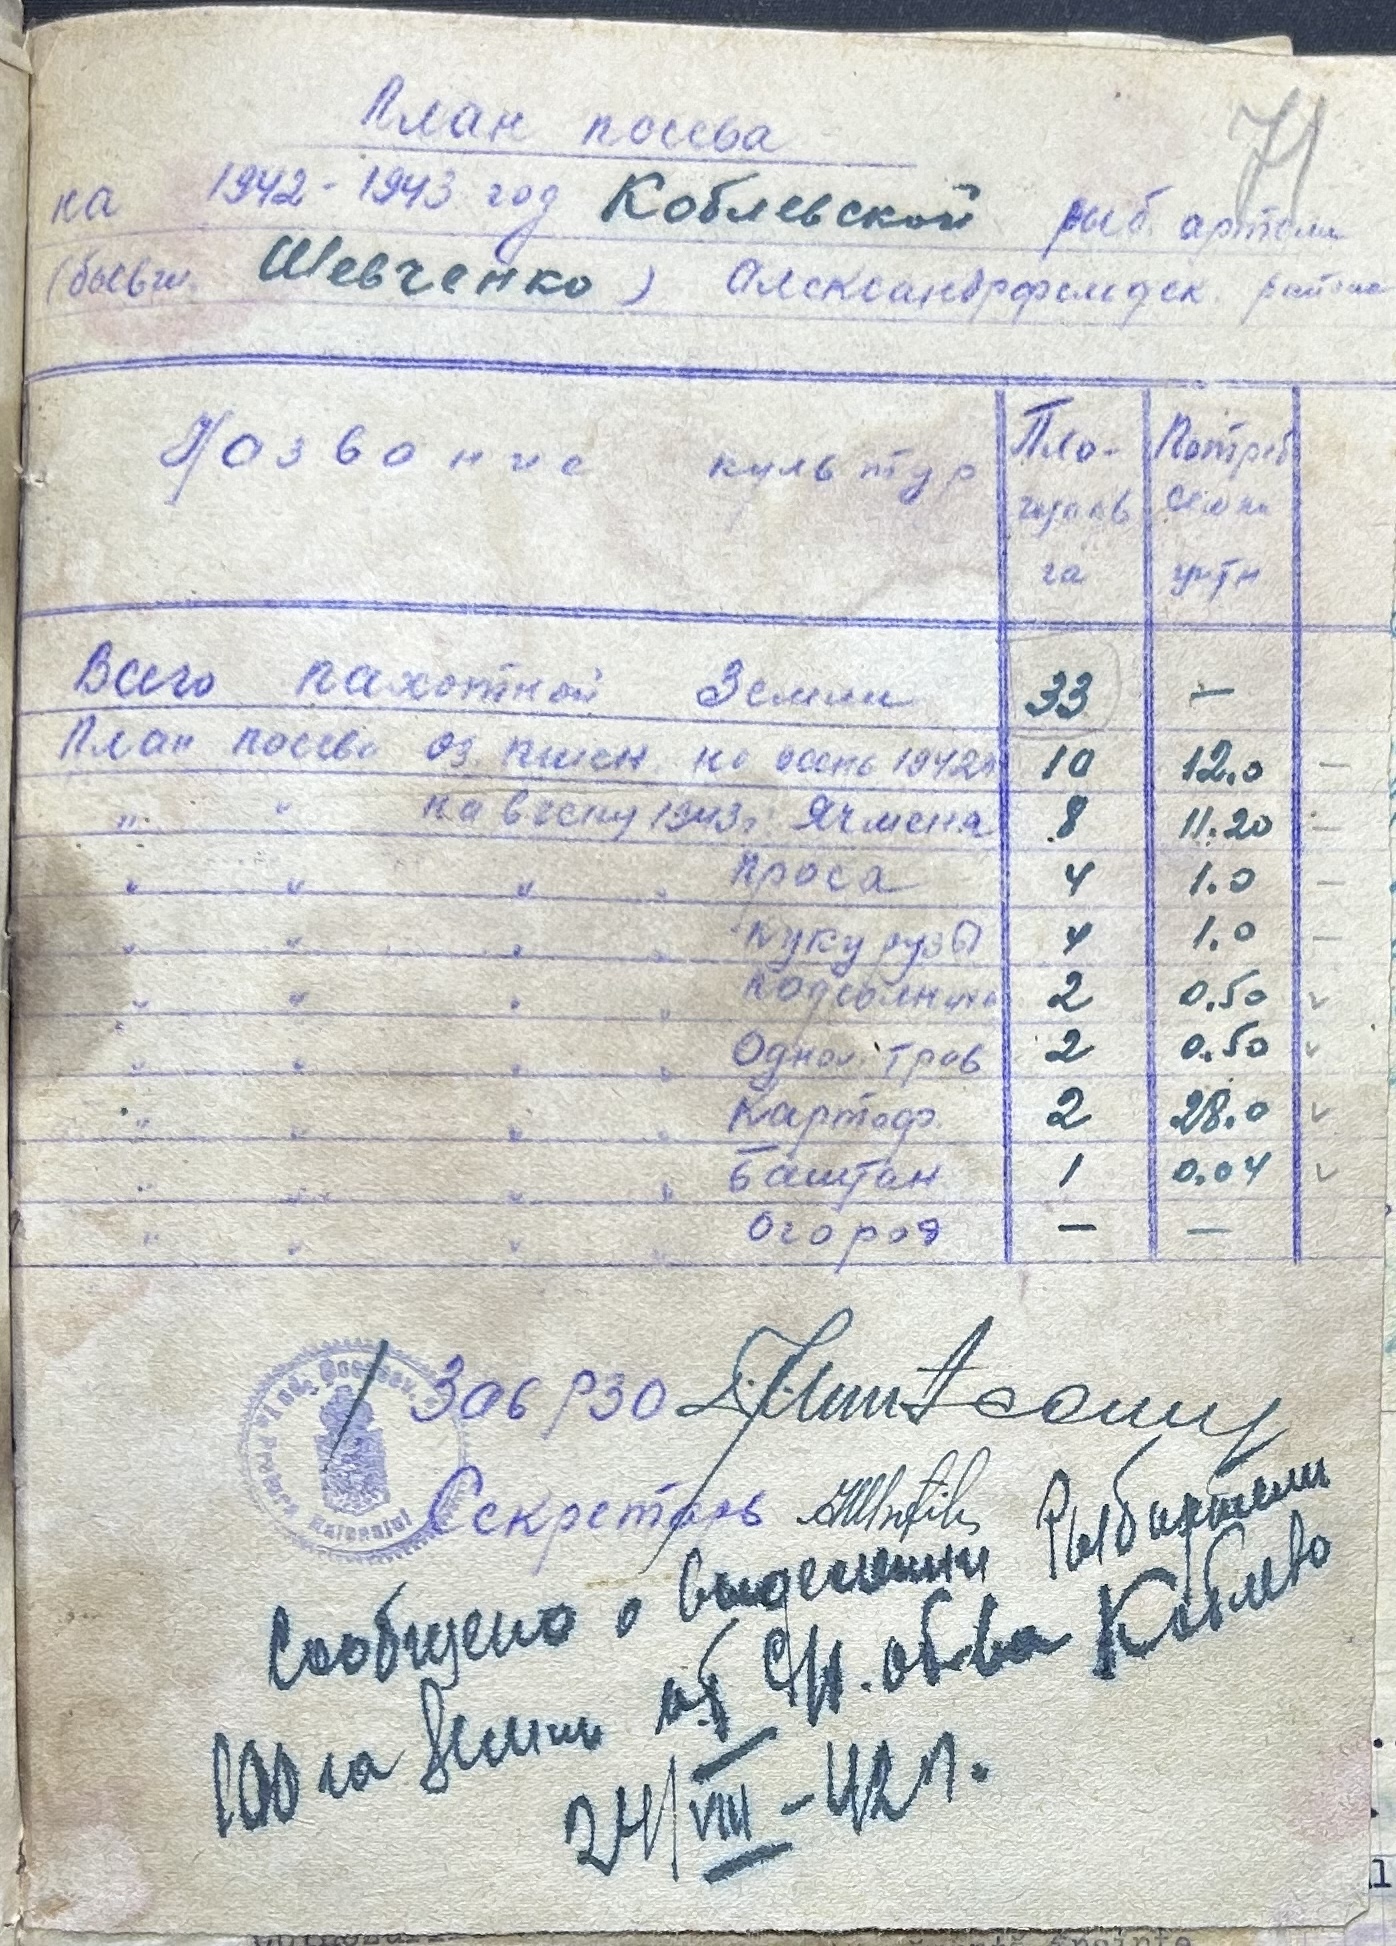 71
План посева
на 1942-1943 год Коблевской рыб. артели
(бывш. Шевченко) Александрфельдск. района
Название культур
Пло-
щадь
га
Потреб
семян
цнтн
Всего пахотной Земли 33 —
План посева оз. пшен. на осень 1942г 10 12.0 —
" " на весну 1943г. Ячменя 8 11.20 —
" " " " Проса 4 1.0 —
" " " " Кукурузы 4 1.0 —
" " " " Подсолнуха 2 0.50 ✓
" " " " Однол. трав 2 0.50 ✓
" " " " Картоф. 2 28.0 ✓
" " " " Баштан 1 0.04 ✓
" " " " Огород — —
Зав РЗО
Секретарь
Сообщено о выделении Рыбартели
100 га земли от С/Х. об-ва Коблево
24/VIII-42 г.